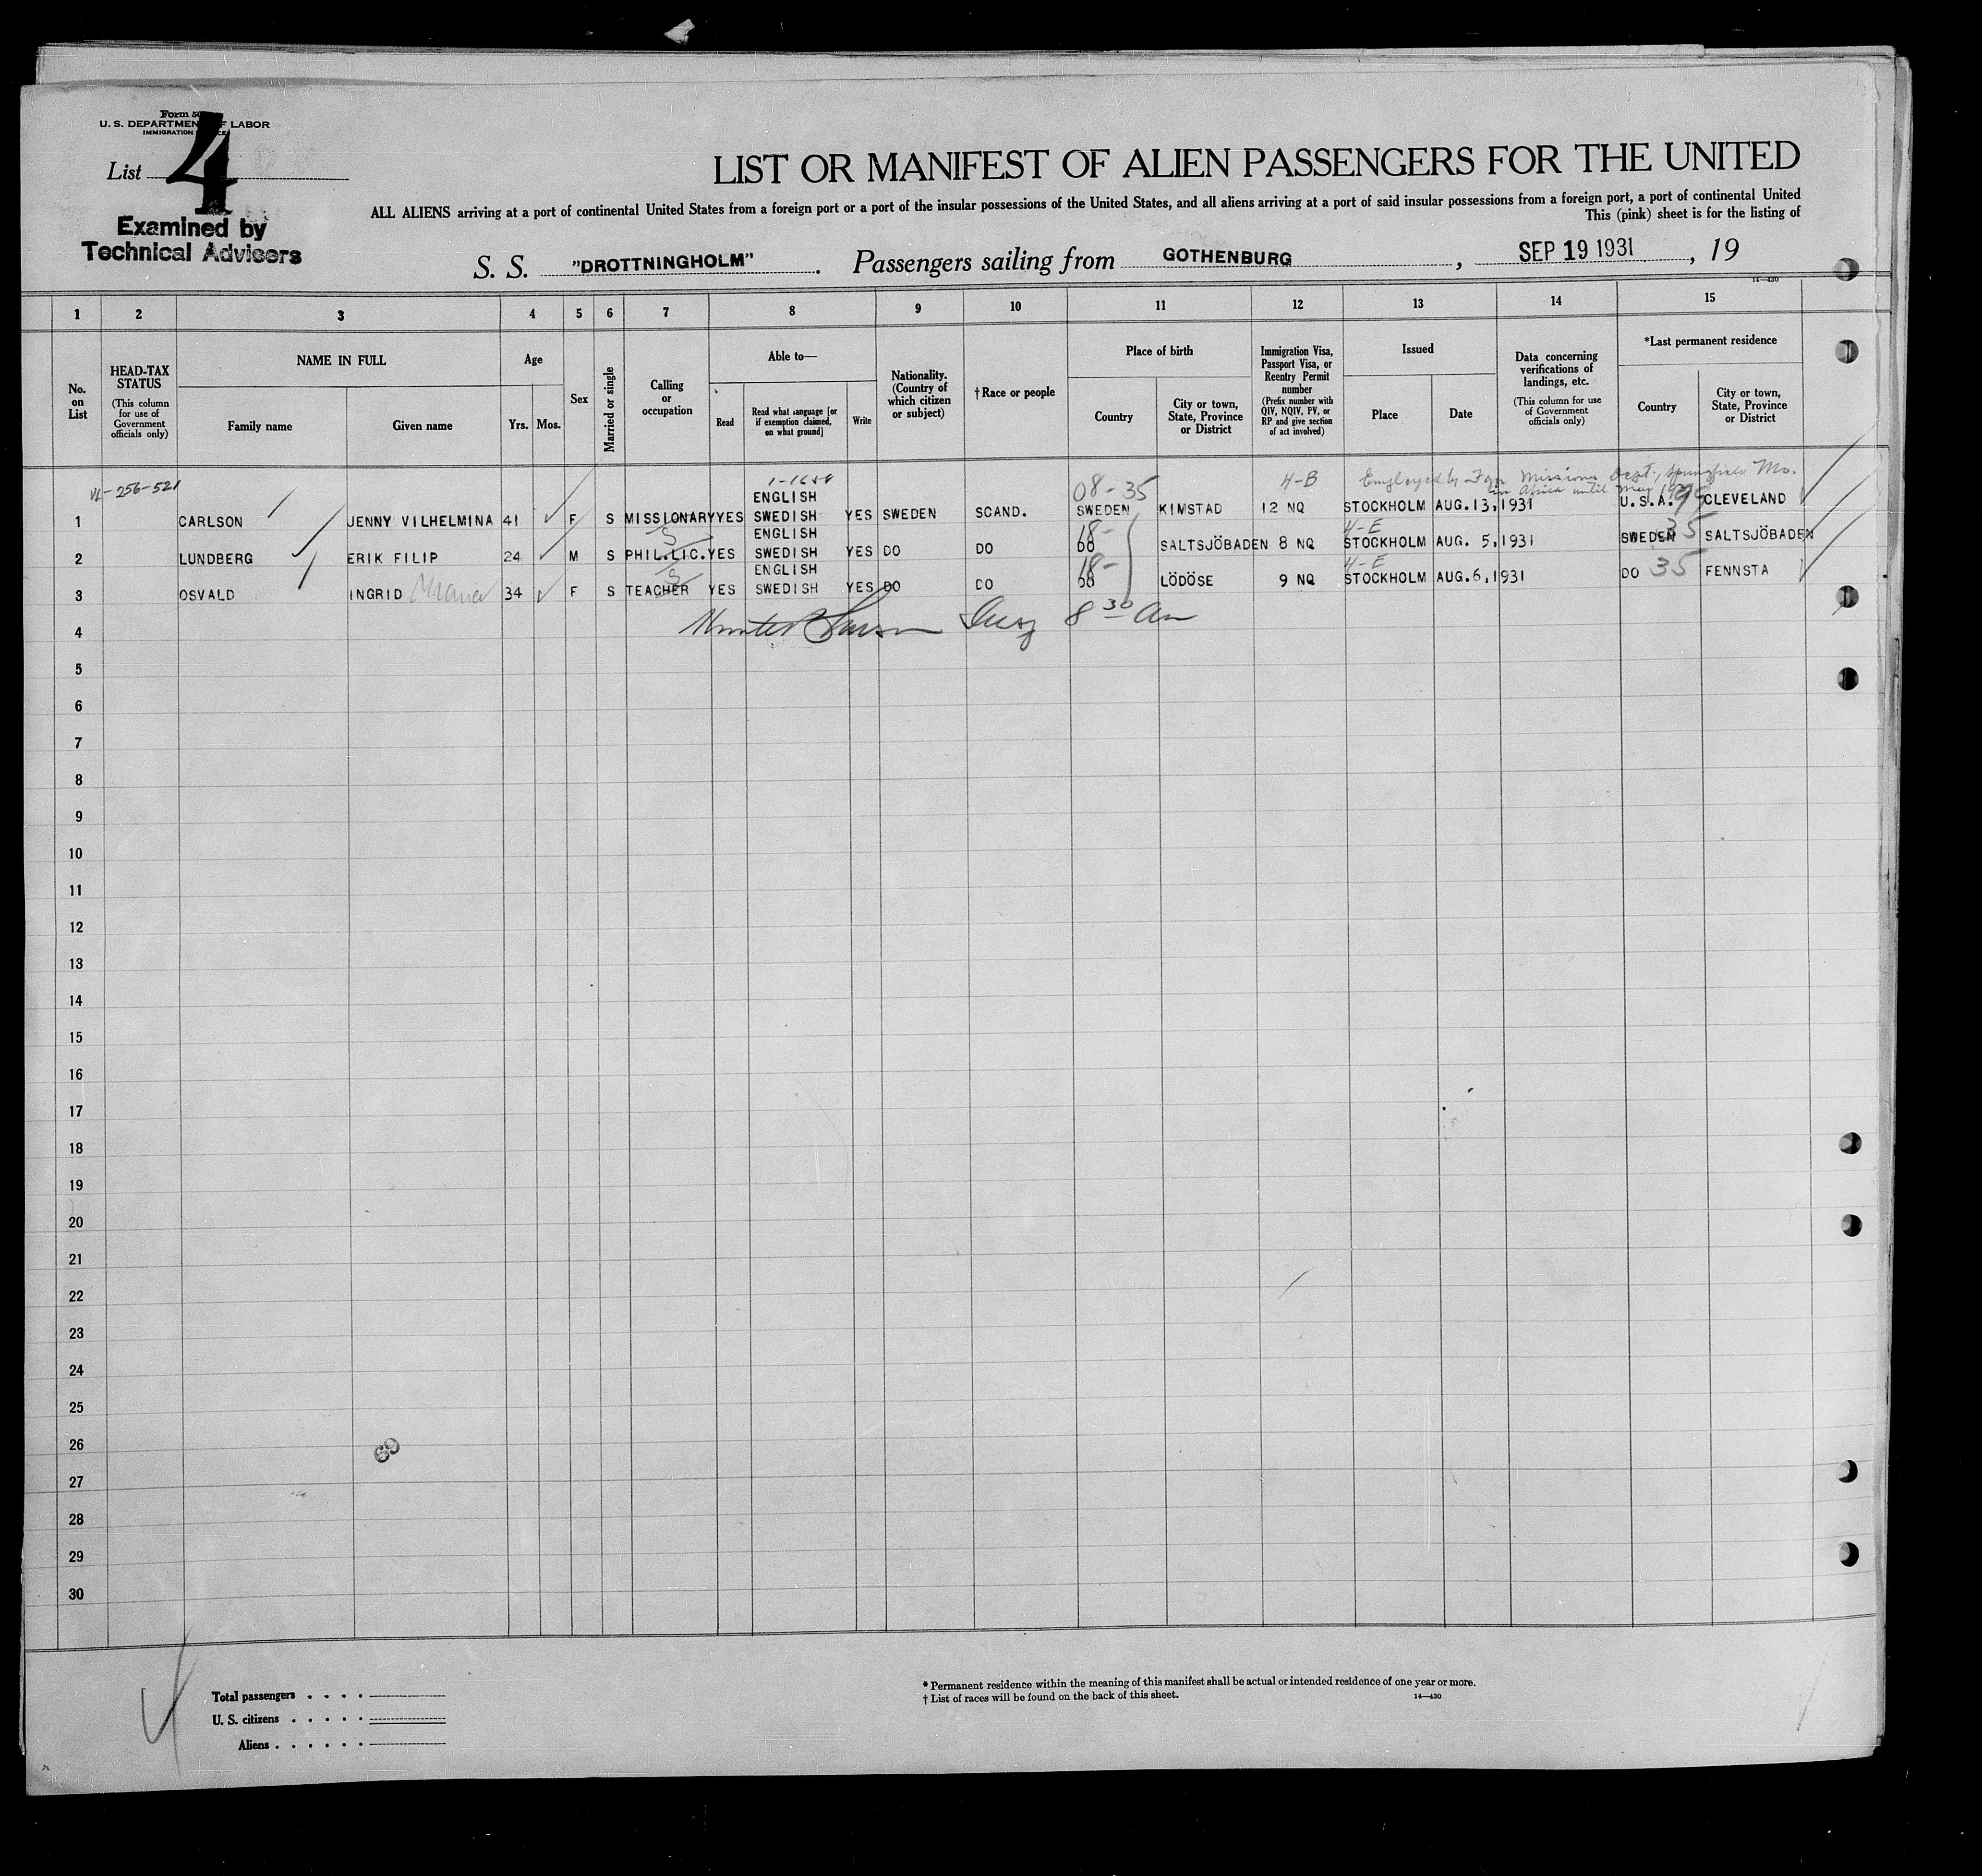 Form 50
U. S. DEPARTMENT OF LABOR
IMMIGRATION
List 4
Examined by
Technical Advisers
LIST OR MANIFEST OF ALIEN PASSENGERS FOR THE UNITED
ALL ALIENS arriving at a port of continental United States from a foreign port or a port of the insular possessions of the United States, and all aliens arriving at a port of said insular possessions from a foreign port, a port of continental United
This (pink) sheet is for the listing of
S. S. "DROTTNINGHOLM". Passengers sailing from GOTHENBURG, SEP 19 1931, 19
14—430
1 2 3 4 5 6 7 8 9 10 11 12 13 14 15
No. on List
HEAD-TAX STATUS
(This column for use of Government officials only)
NAME IN FULL
Family name
Given name
Age
Yrs.
Mos.
Sex
Married or single
Calling or occupation
Able to—
Read
Read what language [or if exemption claimed, on what ground]
Write
Nationality. (Country of which citizen or subject)
† Race or people
Place of birth
Country
City or town, State, Province or District
Immigration Visa, Passport Visa, or Reentry Permit number
(Prefix number with QIV, NQIV, PV, or RP and give section of act involved)
Issued
Place
Date
Data concerning verifications of landings, etc.
(This column for use of Government officials only)
*Last permanent residence
Country
City or town, State, Province or District
256-521 08-35 4-B Employed by Missions Dept., Springfield Mo.
in Africa until May
1 CARLSON JENNY VILHELMINA 41 F S MISSIONARY YES ENGLISH SWEDISH YES SWEDEN SCAND. SWEDEN KIMSTAD 12 NQ STOCKHOLM AUG.13,1931 U.S.A. CLEVELAND
18- 4-E 35
2 LUNDBERG ERIK FILIP 24 M S PHIL.LIC. YES ENGLISH SWEDISH YES DO DO DO SALTSJÖBADEN 8 NQ STOCKHOLM AUG. 5,1931 SWEDEN SALTSJÖBADEN
18- 4-E 35
3 OSVALD INGRID Maria 34 F S TEACHER YES ENGLISH SWEDISH YES DO DO DO LÖDÖSE 9 NQ STOCKHOLM AUG.6,1931 DO FENNSTA
8 30 Am
4
5
6
7
8
9
10
11
12
13
14
15
16
17
18
19
20
21
22
23
24
25
26
27
28
29
30
Total passengers . . . .
U. S. citizens . . . . .
Aliens . . . . . .
* Permanent residence within the meaning of this manifest shall be actual or intended residence of one year or more.
† List of races will be found on the back of this sheet.
14—430